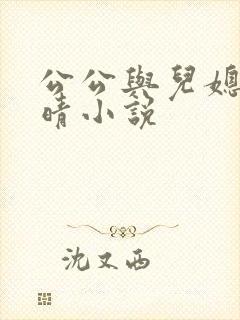 公公與兒媳
晴小説
沈又西